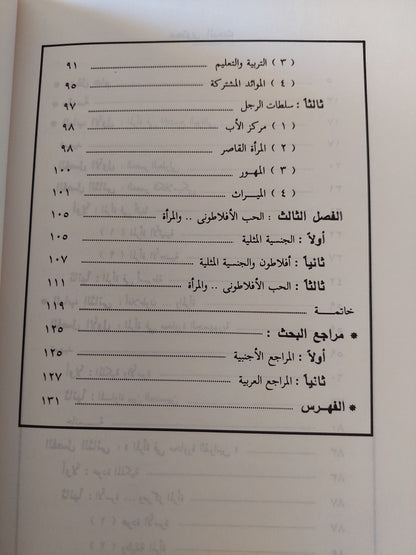 ( ٣ ) التربية والتعليم ........ ٩١
( ٤ ) الموائد المشتركة ........ ٩٥
ثالثاً : سلطات الرجل ........ ٩٧
( ١ ) مركز الأب ........ ٩٨
( ٢ ) المرأة القاصر ........ ٩٨
( ٣ ) المهـور ........ ١٠٠
( ٤ ) الميـراث ........ ١٠١
الفصل الثالث : الحب الأفلاطونى .. والمرأة ........ ١٠٥
أولاً : الجنسية المثلية ........ ١٠٥
ثانياً : أفلاطون والجنسية المثلية ........ ١٠٧
ثالثاً : الحب الأفلاطونى .. والمرأة ........ ١١١
خاتمـــة ........ ١١٩
* مراجع البحث : ........ ١٢٥
أولاً : المراجع الأجنبية ........ ١٢٥
ثانياً : المراجع العربية ........ ١٢٧
* الفهـرس ........ ١٣١